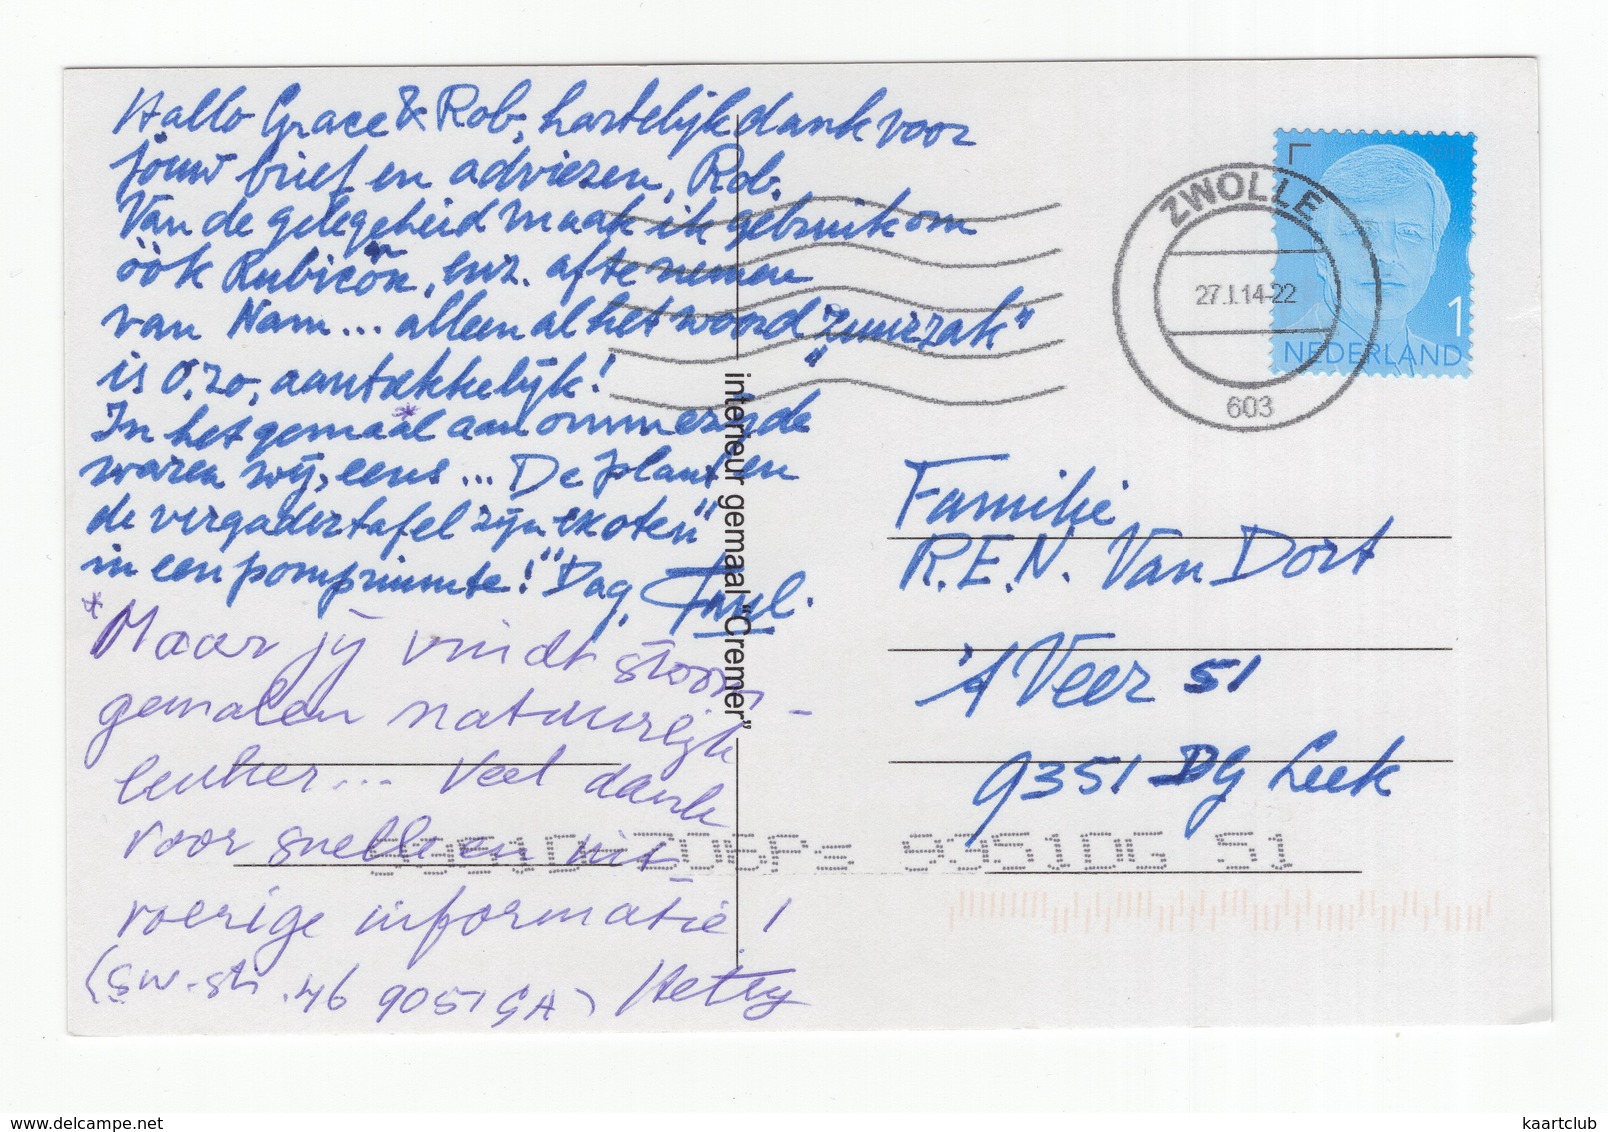 Hallo Grace & Rob, hartelijk dank voor
jouw brief en adviezen, Rob.
Van de gelegeheid maak ik gebruik om
óók Rubicon, enz. af te nemen
van Nam... alleen al het woord "zuurzak"
is 0,20, aantrekkelijk!
In het gemaal* aan ommezijde
waren wij, eens... De planten
de vergadertafel zijn "exoten"
in een pompruimte! Dag, Paul.
*Maar jij vindt stoom-
gemalen natuurlijk
leuker... Veel dank
voor snelle en uit-
voerige informatie!
(SW-str. 46 9051 GA) Hetty
interieur gemaal "Cremer"
ZWOLLE
27.I.14-22
603
1
NEDERLAND
Familie
R.E.N. Van Dort
't Veer 51
9351 DG Leek
9351DG 51
www.delcampe.net
kaartclub